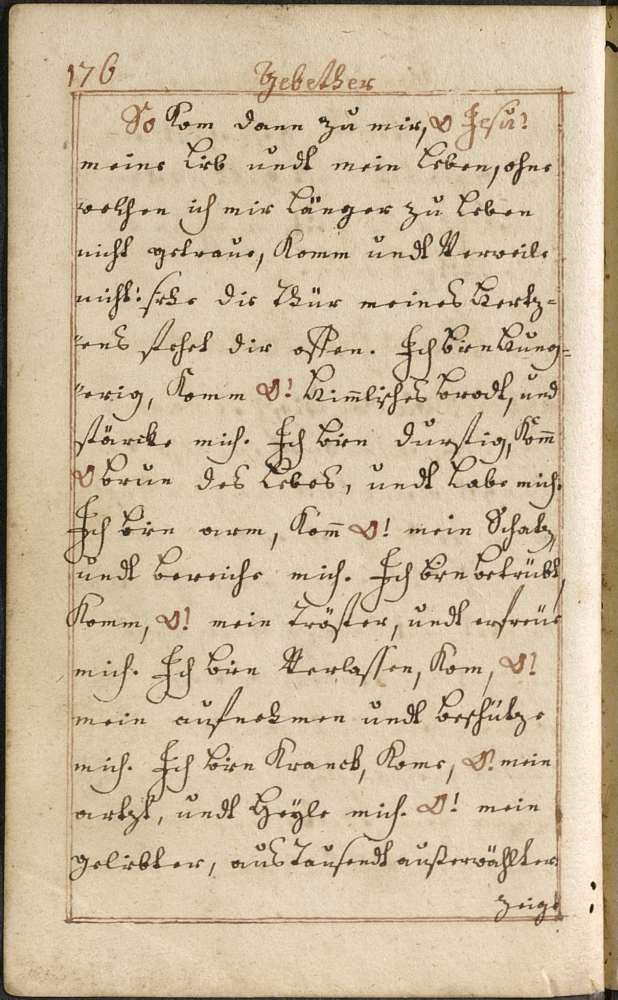 176 Gebether
So kom dann zu mir, O Jesu!
meine Lieb undt mein Leben, ohne
welchen ich mir länger zu leben
nicht getraue, komm undt Verweile
nicht: siehe die Thür meines Hertz-
ens stehet dir offen. Ich bien hung-
erig, komm O! himmlisches brodt, und
stärcke mich. Ich bien durstig, kom̄
O brun des Lebes, undt labe mich.
Ich bin arm, kom̄ O! mein Schatz,
undt bereiche mich. Ich bin betrübt,
komm, O! mein Tröster, undt erfreüe
mich. Ich bien Verlassen, kom, O!
mein aufnehmen undt beschütze
mich. Ich bien kranck, kome, O! mein
artzt, undt heyle mich. O! mein
geliebter, aus Tausendt außerwählter
zeige